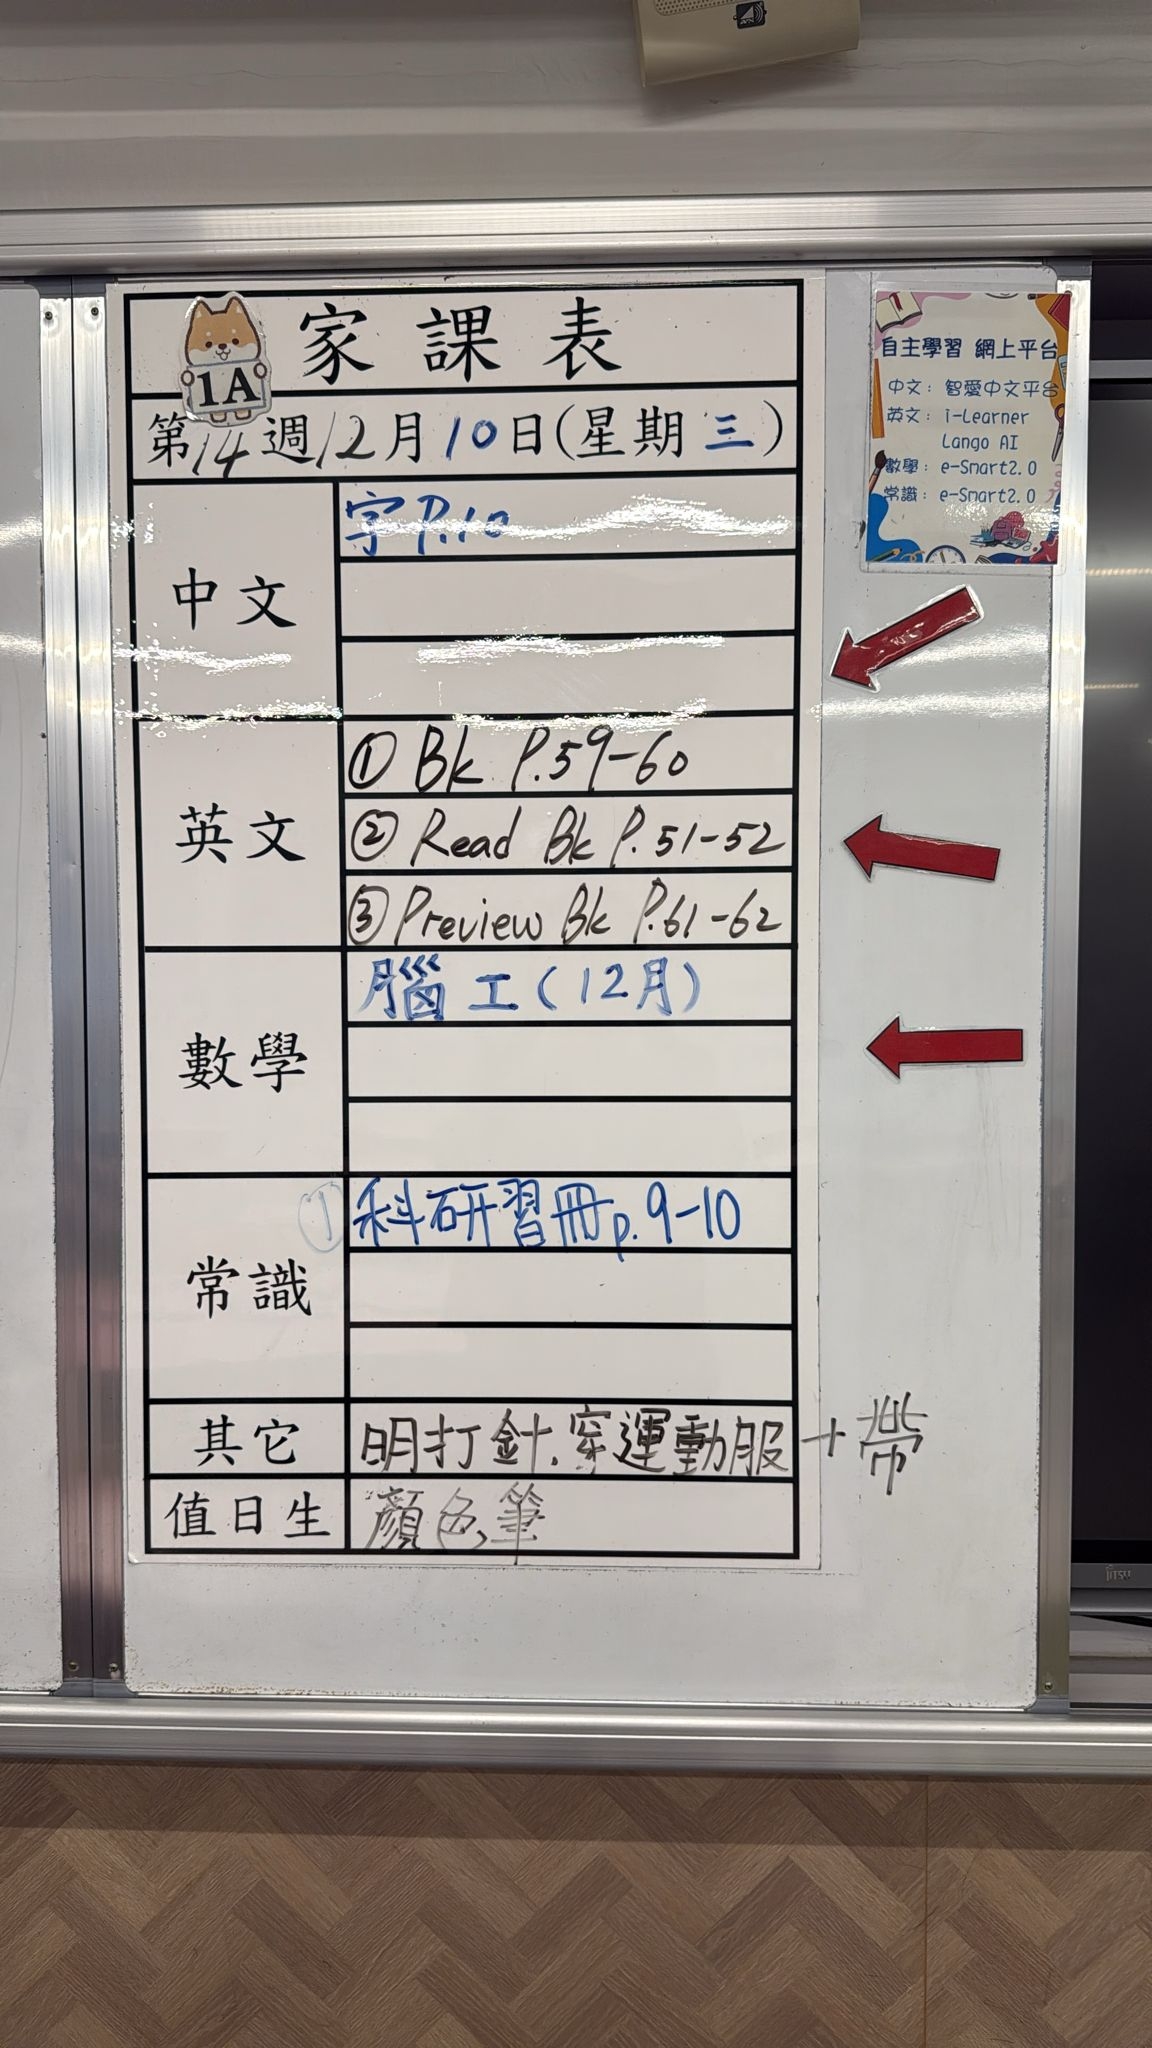 家課表
1A
第14週12月10日(星期三)
中文
字P.10
英文
① Bk P.59-60
② Read Bk P.51-52
③ Preview Bk P.61-62
數學
腦工(12月)
常識
①科研習冊p.9-10
其它
明打針.穿運動服+帶
值日生
顏色筆
自主學習 網上平台
中文：智愛中文平台
英文：i-Learner
Lango AI
數學：e-Smart2.0
常識：e-Smart2.0